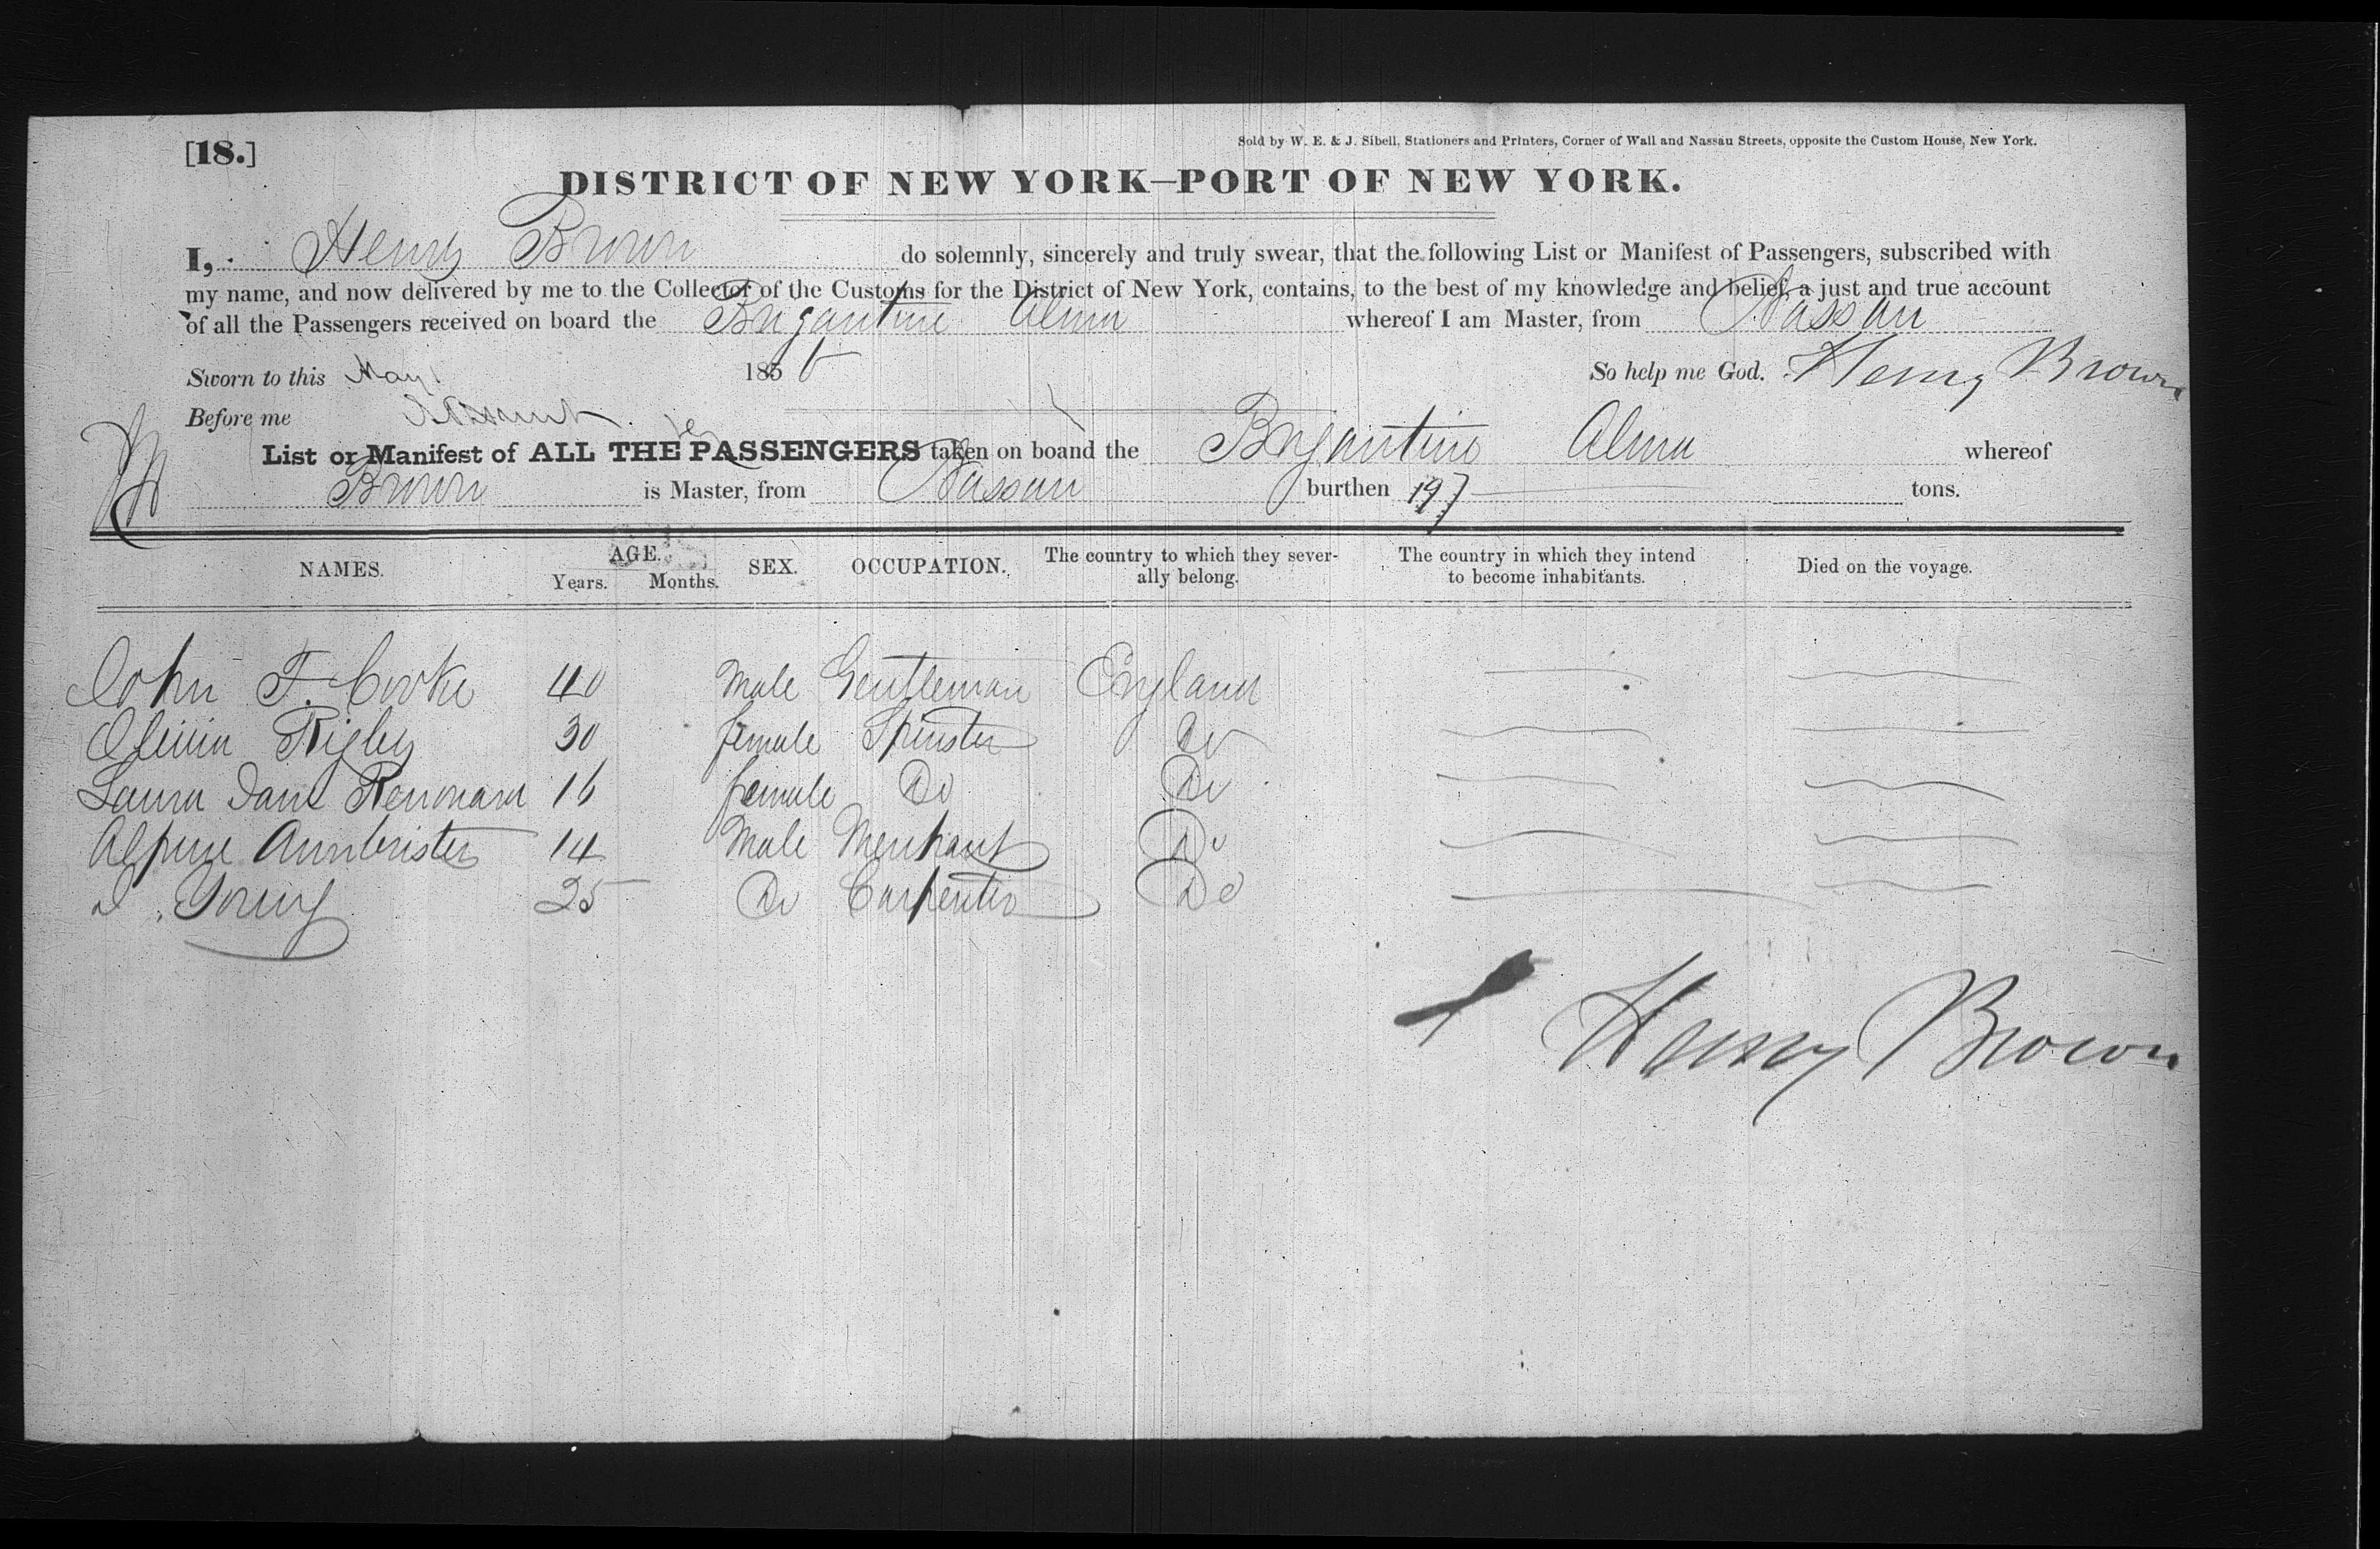 [18.]
Sold by W. E. & J. Sibell, Stationers and Printers, Corner of Wall and Nassau Streets, opposite the Custom House, New York.
DISTRICT OF NEW YORK—PORT OF NEW YORK.
I, Henry Brown do solemnly, sincerely and truly swear, that the following List or Manifest of Passengers, subscribed with
my name, and now delivered by me to the Collector of the Customs for the District of New York, contains, to the best of my knowledge and belief, a just and true account
of all the Passengers received on board the Brigantine Alma whereof I am Master, from Nassau
Sworn to this May 1 1856 So help me God. Henry Brown
Before me
List or Manifest of ALL THE PASSENGERS taken on boand the Brigantine Alma whereof
Brown is Master, from Nassau burthen 197 tons.
NAMES. AGE. Years. Months. SEX. OCCUPATION. The country to which they sever-ally belong. The country in which they intend to become inhabitants. Died on the voyage.
John F. Cooke 40 Male Gentleman England
Olivia Rigby 30 female Spinster Do
Laura Jane Renouard 16 female Do Do
Armbrister 14 Male Merchant Do
Young 25 Do Carpenter Do
Henry Brown